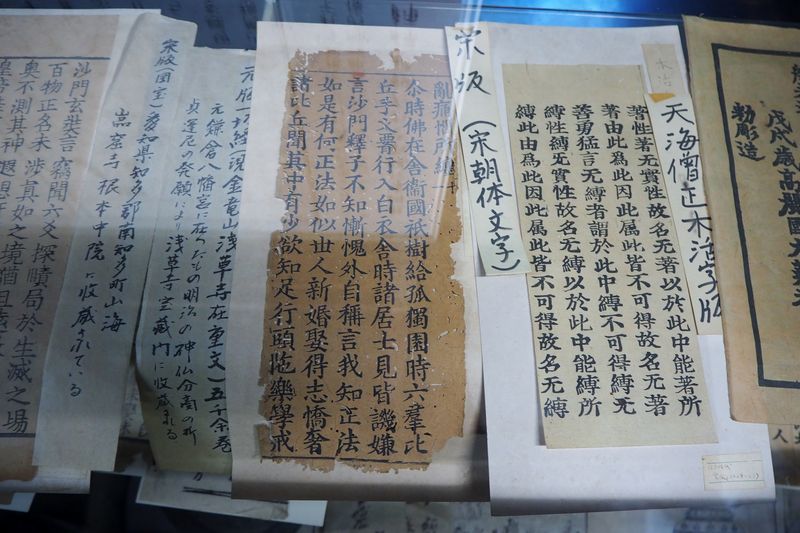 戊戌歳高麗國大
勅彫造
木活
天海僧正木活字版
著性著无實性故名无著以於此中能著所
著由此為此因此属此皆不可得故名无著
善勇猛言无縛者謂於此中縛不可得縛无
縛性縛无實性故名无縛以於此中能縛所
縛此由為此因此属此皆不可得故名无縛
宋版(宋朝体文字)
尒時佛在舍衛國祇樹給孤獨園時六羣比
丘手叉行入白衣舍時諸居士見皆譏嫌
言沙門釋子不知慚愧外自稱言我知正法
如是有何正法如似世人新婚娶得志憍奢
諸比丘聞其中有少欲知足行頭陁樂學戒
元版一切経現金竜山浅草寺在重文)五千余巻
元鎌倉八幡宮に在りたもの明治の神仏分离の折
貞運尼の発願により浅草寺宝蔵門に収蔵さる
宋版(国宝)愛知県知多郡南知多町山海
岩屋寺根本中院に収蔵されている
沙門玄奘言竊聞六爻探賾局於生滅之場
百物正名未涉真如之境猶且遠
奧不測其神遐想